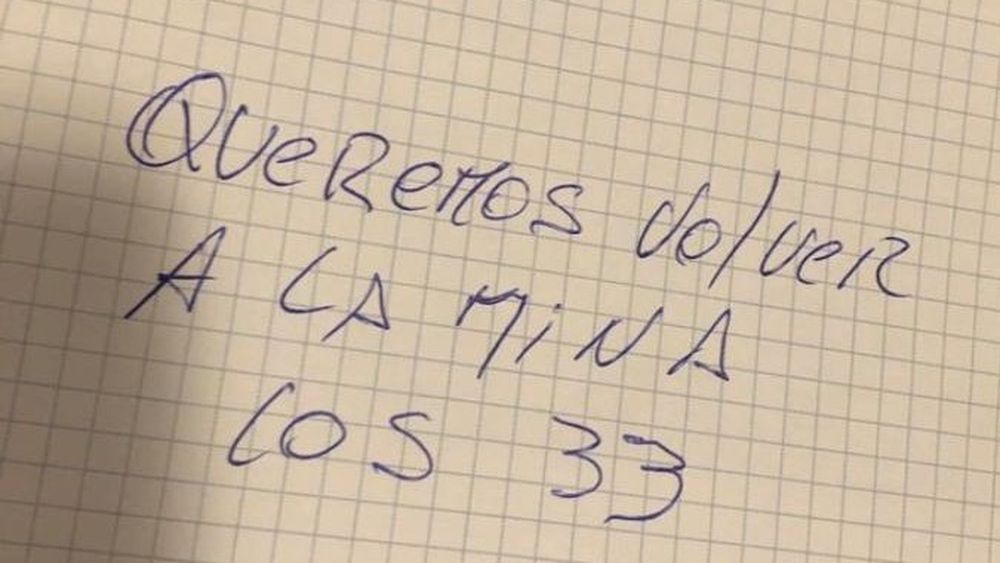 Queremos volver
A LA MiNA
LOS 33